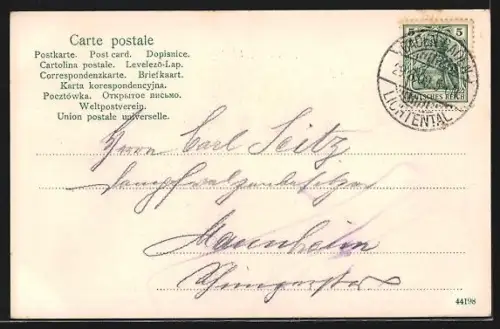 Carte postale
Postkarte. Post card. Dopisnice.
Cartolina postale. Levelező-Lap.
Correspondenzkarte. Briefkaart.
Karta korespondencyjna.
Pocztówka. Открытое письмо.
Weltpostverein.
Union postale universelle.
5 5
DEUTSCHES REICH
BADEN-BADEN
LICHTENTAL
Herrn Carl Seitz
Dampfwalzenbesitzer
Mannheim
44198